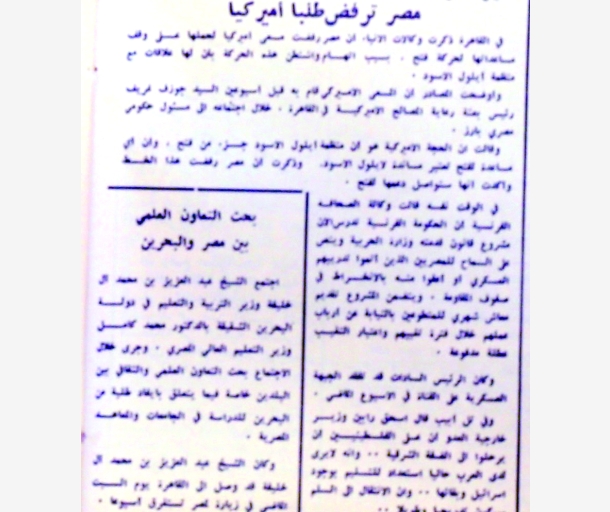 مصر ترفض طلبا أميركيا
في القاهرة ذكرت وكالات الأنباء، ان مصر رفضت مسعى أميركيا لحملها على وقف
مساعداتها لحركة فتح ، بسبب اتهام واشنطن هذه الحركة بان لها علاقات مع
منظمة أيلول الأسود .
وأوضحت المصادر ان المسعى الأميركي قام به قبل أسبوعين السيد جوزف غريف
رئيس بعثة رعاية المصالح الأميركية في القاهرة ، خلال اجتماعه الى مسئول حكومي
مصري بارز .
وقالت ان الحجة الأميركية هو ان منظمة أيلول الأسود جزء من فتح ، وان أي
مساعدة لفتح تعتبر مساندة لأيلول الأسود. وذكرت ان مصر رفضت هذا الضغط
وأكدت انها ستواصل دعمها لفتح .
في الوقت نفسه قالت وكالة الصحافة
الفرنسية ان الحكومة الفرنسية تدرس الآن
مشروع قانون قدمته وزارة الحربية وينص
على السماح للمصريين الذين أتموا تدريبهم
العسكري أو أعفوا منه بالانخراط في
صفوف المقاومة . ويتضمن المشروع تقديم
معاش شهري للمتطوعين بالنيابة عن أرباب
عملهم خلال فترة تغيبهم واعتبار التغيب
عطلة مدفوعة .
وكان الرئيس السادات قد تفقد الجبهة
العسكرية على القناة في الأسبوع الماضي .
وفي تل أبيب قال اسحق رابين وزير
خارجية العدو ان على الفلسطينيين ان
يرحلوا الى الضفة الشرقية .. وانه لا يرى
لدى العرب حاليا استعداد للتسليم بوجود
اسرائيل وبقائها .. وان الانتقال الى السلم
بحث التعاون العلمي
بين مصر والبحرين
اجتمع الشيخ عبد العزيز بن محمد آل
خليفة وزير التربية والتعليم في دولة
البحرين الشقيقة بالدكتور محمد كامل
وزير التعليم العالي المصري . وجرى خلال
الاجتماع بحث التعاون العلمي والثقافي بين
البلدين خاصة فيما يتعلق بايفاد طلبة من
البحرين للدراسة في الجامعات والمعاهد
المصرية .
وكان الشيخ عبد العزيز بن محمد آل
خليفة قد وصل الى القاهرة يوم السبت
الماضي في زيارة لمصر تستغرق أسبوعا .